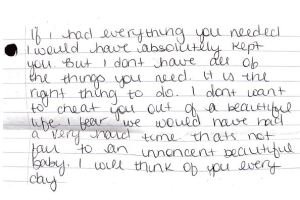 If I had everything you needed
I would have absolutely kept
you. But I dont have all of
the things you need. It is the
right thing to do. I dont want
to cheat you out of a beautiful
life. I fear we would have had
a very hard time thats not
fair to an innoncent beautiful
baby. I will think of you every
day